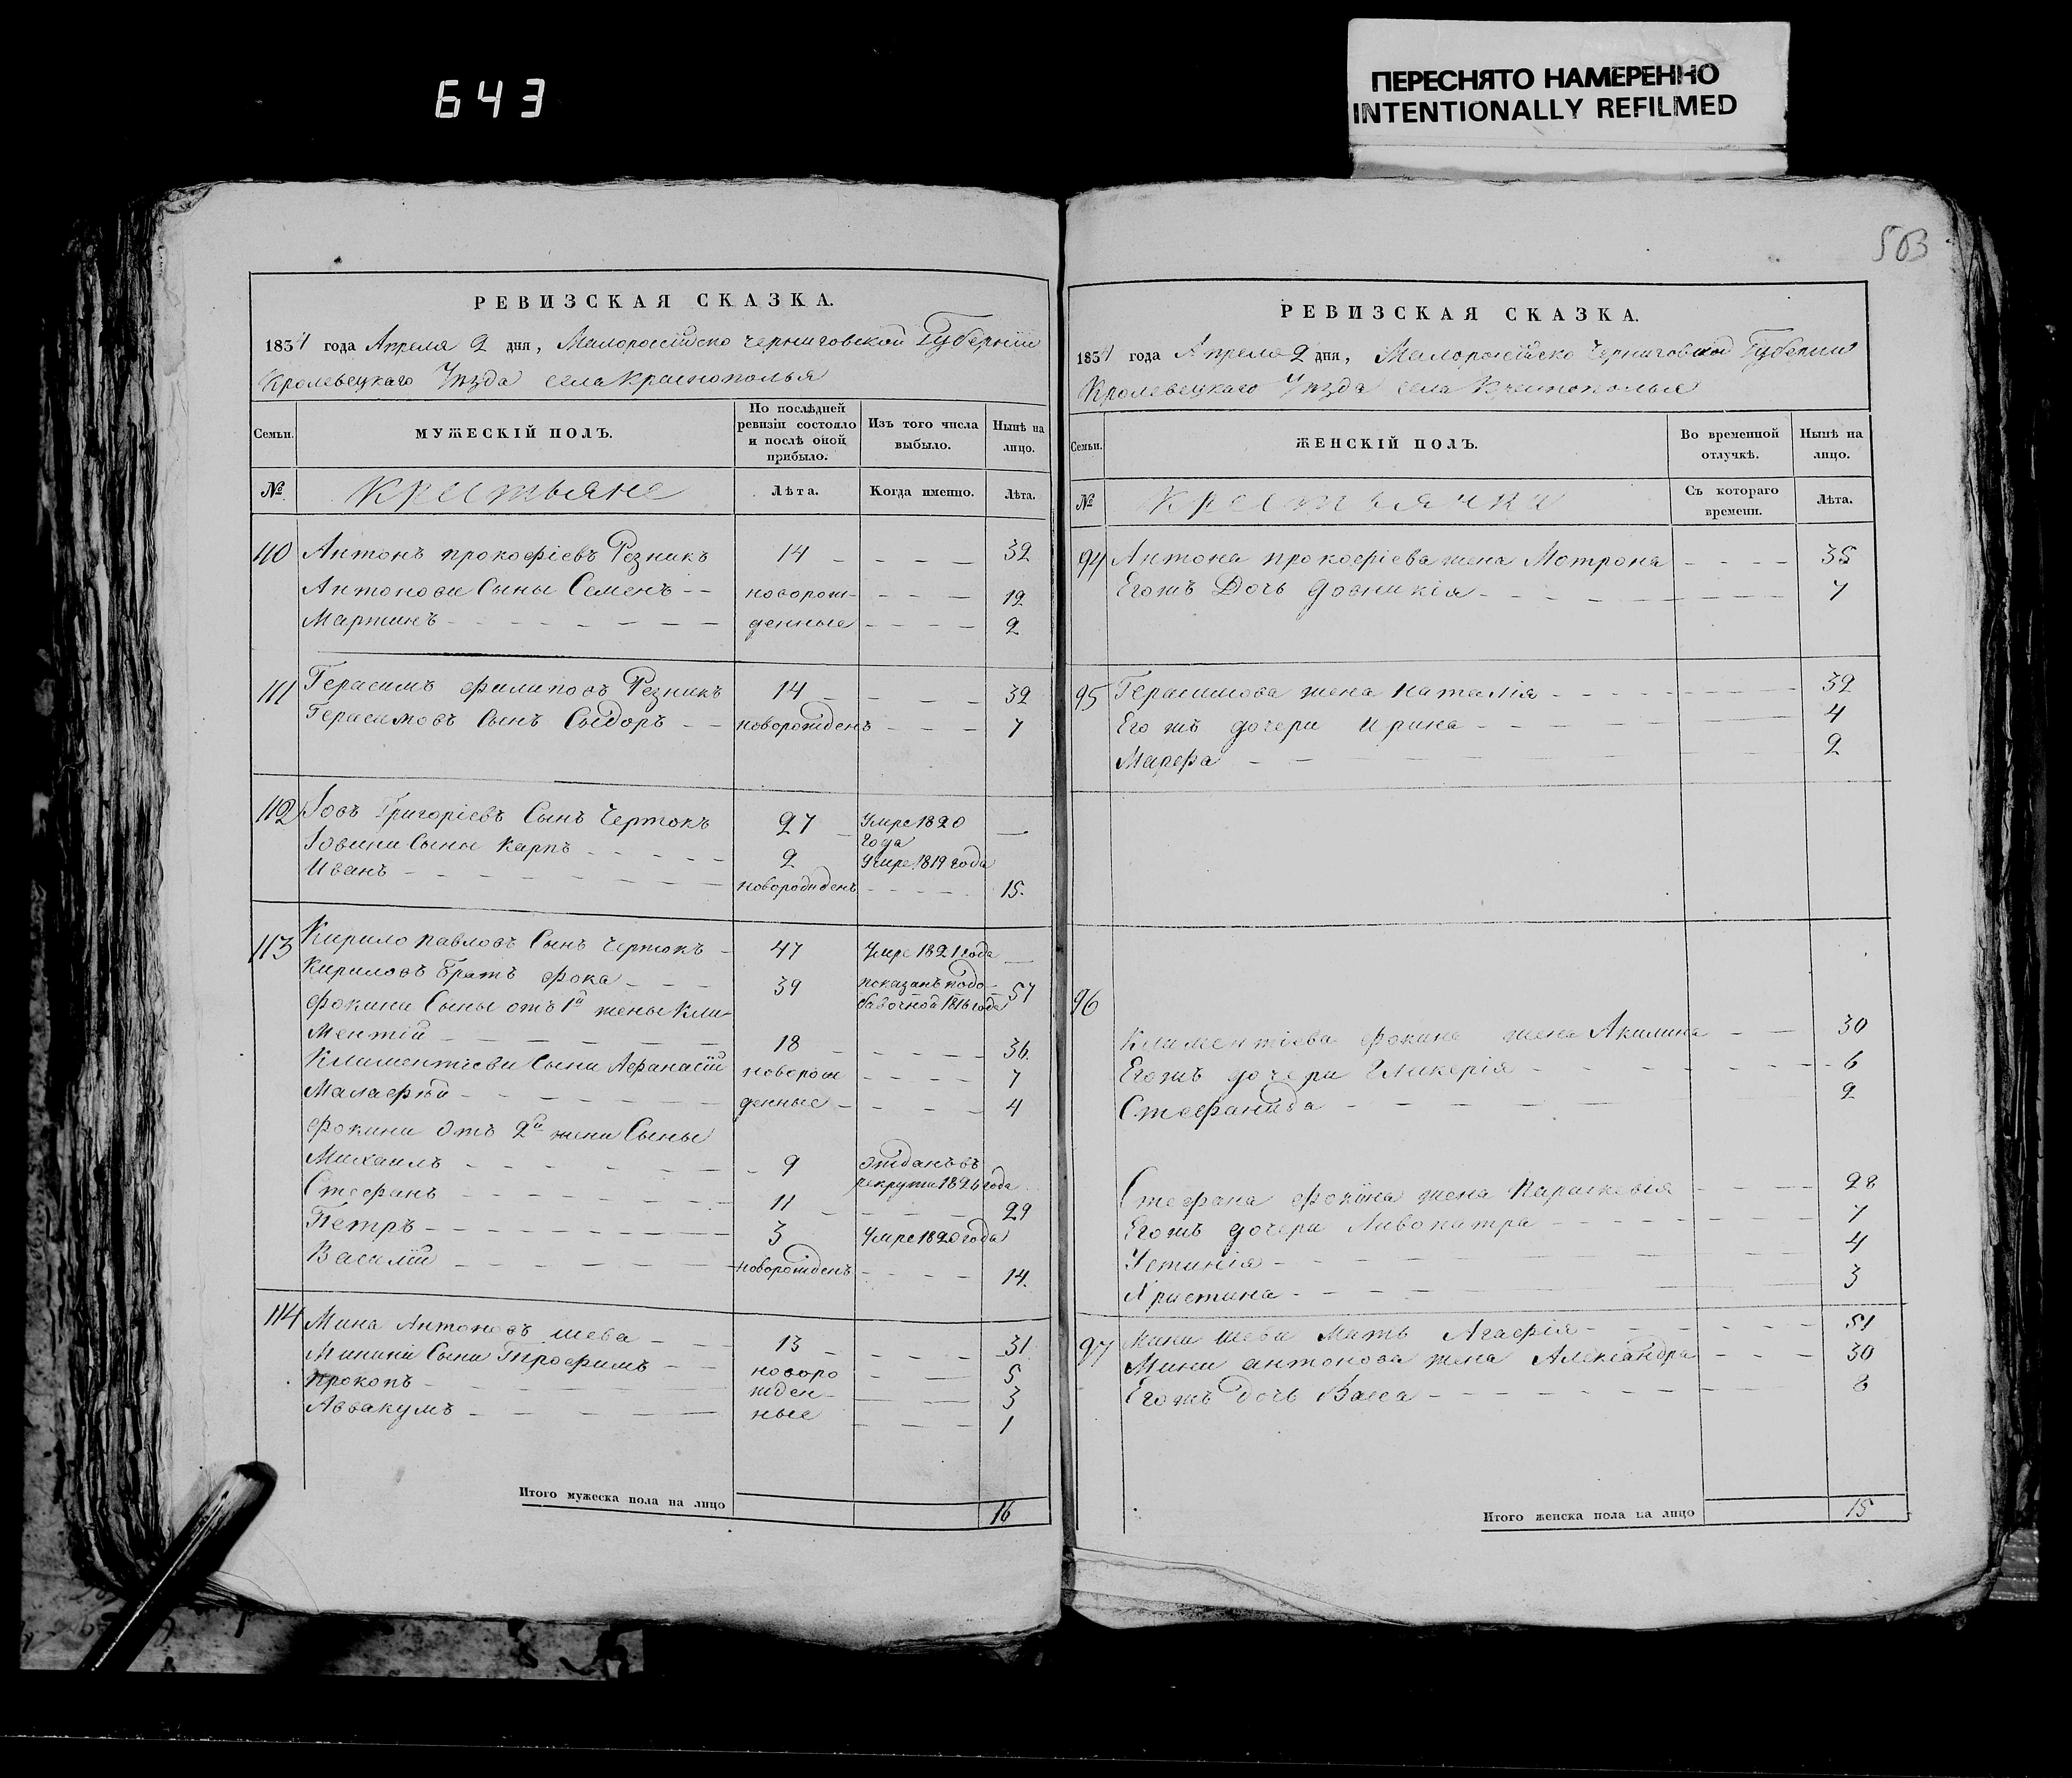 643
ПЕРЕСНЯТО НАМЕРЕННО
INTENTIONALLY REFILMED
503
РЕВИЗСКАЯ СКАЗКА.
1834 года Апреля 2 дня, Малороссійско Черниговской Губерніи
Кролевецкаго Уѣзда села Краснополья
Семьи.
МУЖЕСКІЙ ПОЛЪ.
По послѣдней ревизіи состояло и послѣ оной прибыло.
Изъ того числа выбыло.
Нынѣ на лицо.
№
Крестьяне
Лѣта.
Когда именно.
Лѣта.
40 Антонъ прокофіевъ Резникъ 14 32
Антонови Сыны Семенъ новорож- 12
Мартинъ денные 2
111 Герасимъ филиповъ Резникъ 14 32
Герасимовъ Сынъ Сыдоръ новорожденъ 7
112 Іовъ Григоріевъ Сынъ Чертокъ 27 Умре 1820 года
Іовини Сыны Карпъ 2 Умре 1819 года
Иванъ новорожденъ 15.
113 Кирило павловъ Сынъ Чертокъ 47 Умре 1821 года
Кириловъ Братъ фока 39 показанъ подо- 57
бавочной 1816 года
фокини Сыны отъ 1й жены Кли-
ментій 18 36.
Климентіеви Сыни Афанасій новорож 7
Малафѣй денные 4
фокини Отъ 2й жени Сыны
Михаилъ 9 Отданъ въ
рекруты 1826 года
Стефанъ 11 29
Петръ 3 Умре 1820 года
Василій новорожденъ 14.
114 Мина Антоновъ шева 13 31.
Минини Сыни Трофимъ новоро 5
Прокопъ жден- 3
Аввакумъ ные 1
Итого мужеска пола на лицо 16
РЕВИЗСКАЯ СКАЗКА.
1834 года Апреля 2 дня, Малоросійско Черниговской Губернии
Кролевецкаго Уѣзда села Краснополья
Семьи.
ЖЕНСКІЙ ПОЛЪ.
Во временной отлучкѣ.
Нынѣ на лицо.
№
Крестьянки
Съ котораго времени.
Лѣта.
94 Антона прокофіева жена Мотрона 35
Егожъ Дочь Довникія 7
95 Герасимова жена Наталія 32
Его жъ дочери Ирина 4
Марфа 2
96
Климентіева фокина жена Акилина 30
Егожъ дочери Гликерія 6
Стефанида 2
Стефана фокіна жена Параскевія 28
Егожъ дочери Ливопатра 7
Устинія 4
Христина 3
97 Мини шеви Мать Агафія 51
Мини антонова жена Александра 30
Егожъ дочь Васса 8
Итого женска пола на лицо 15